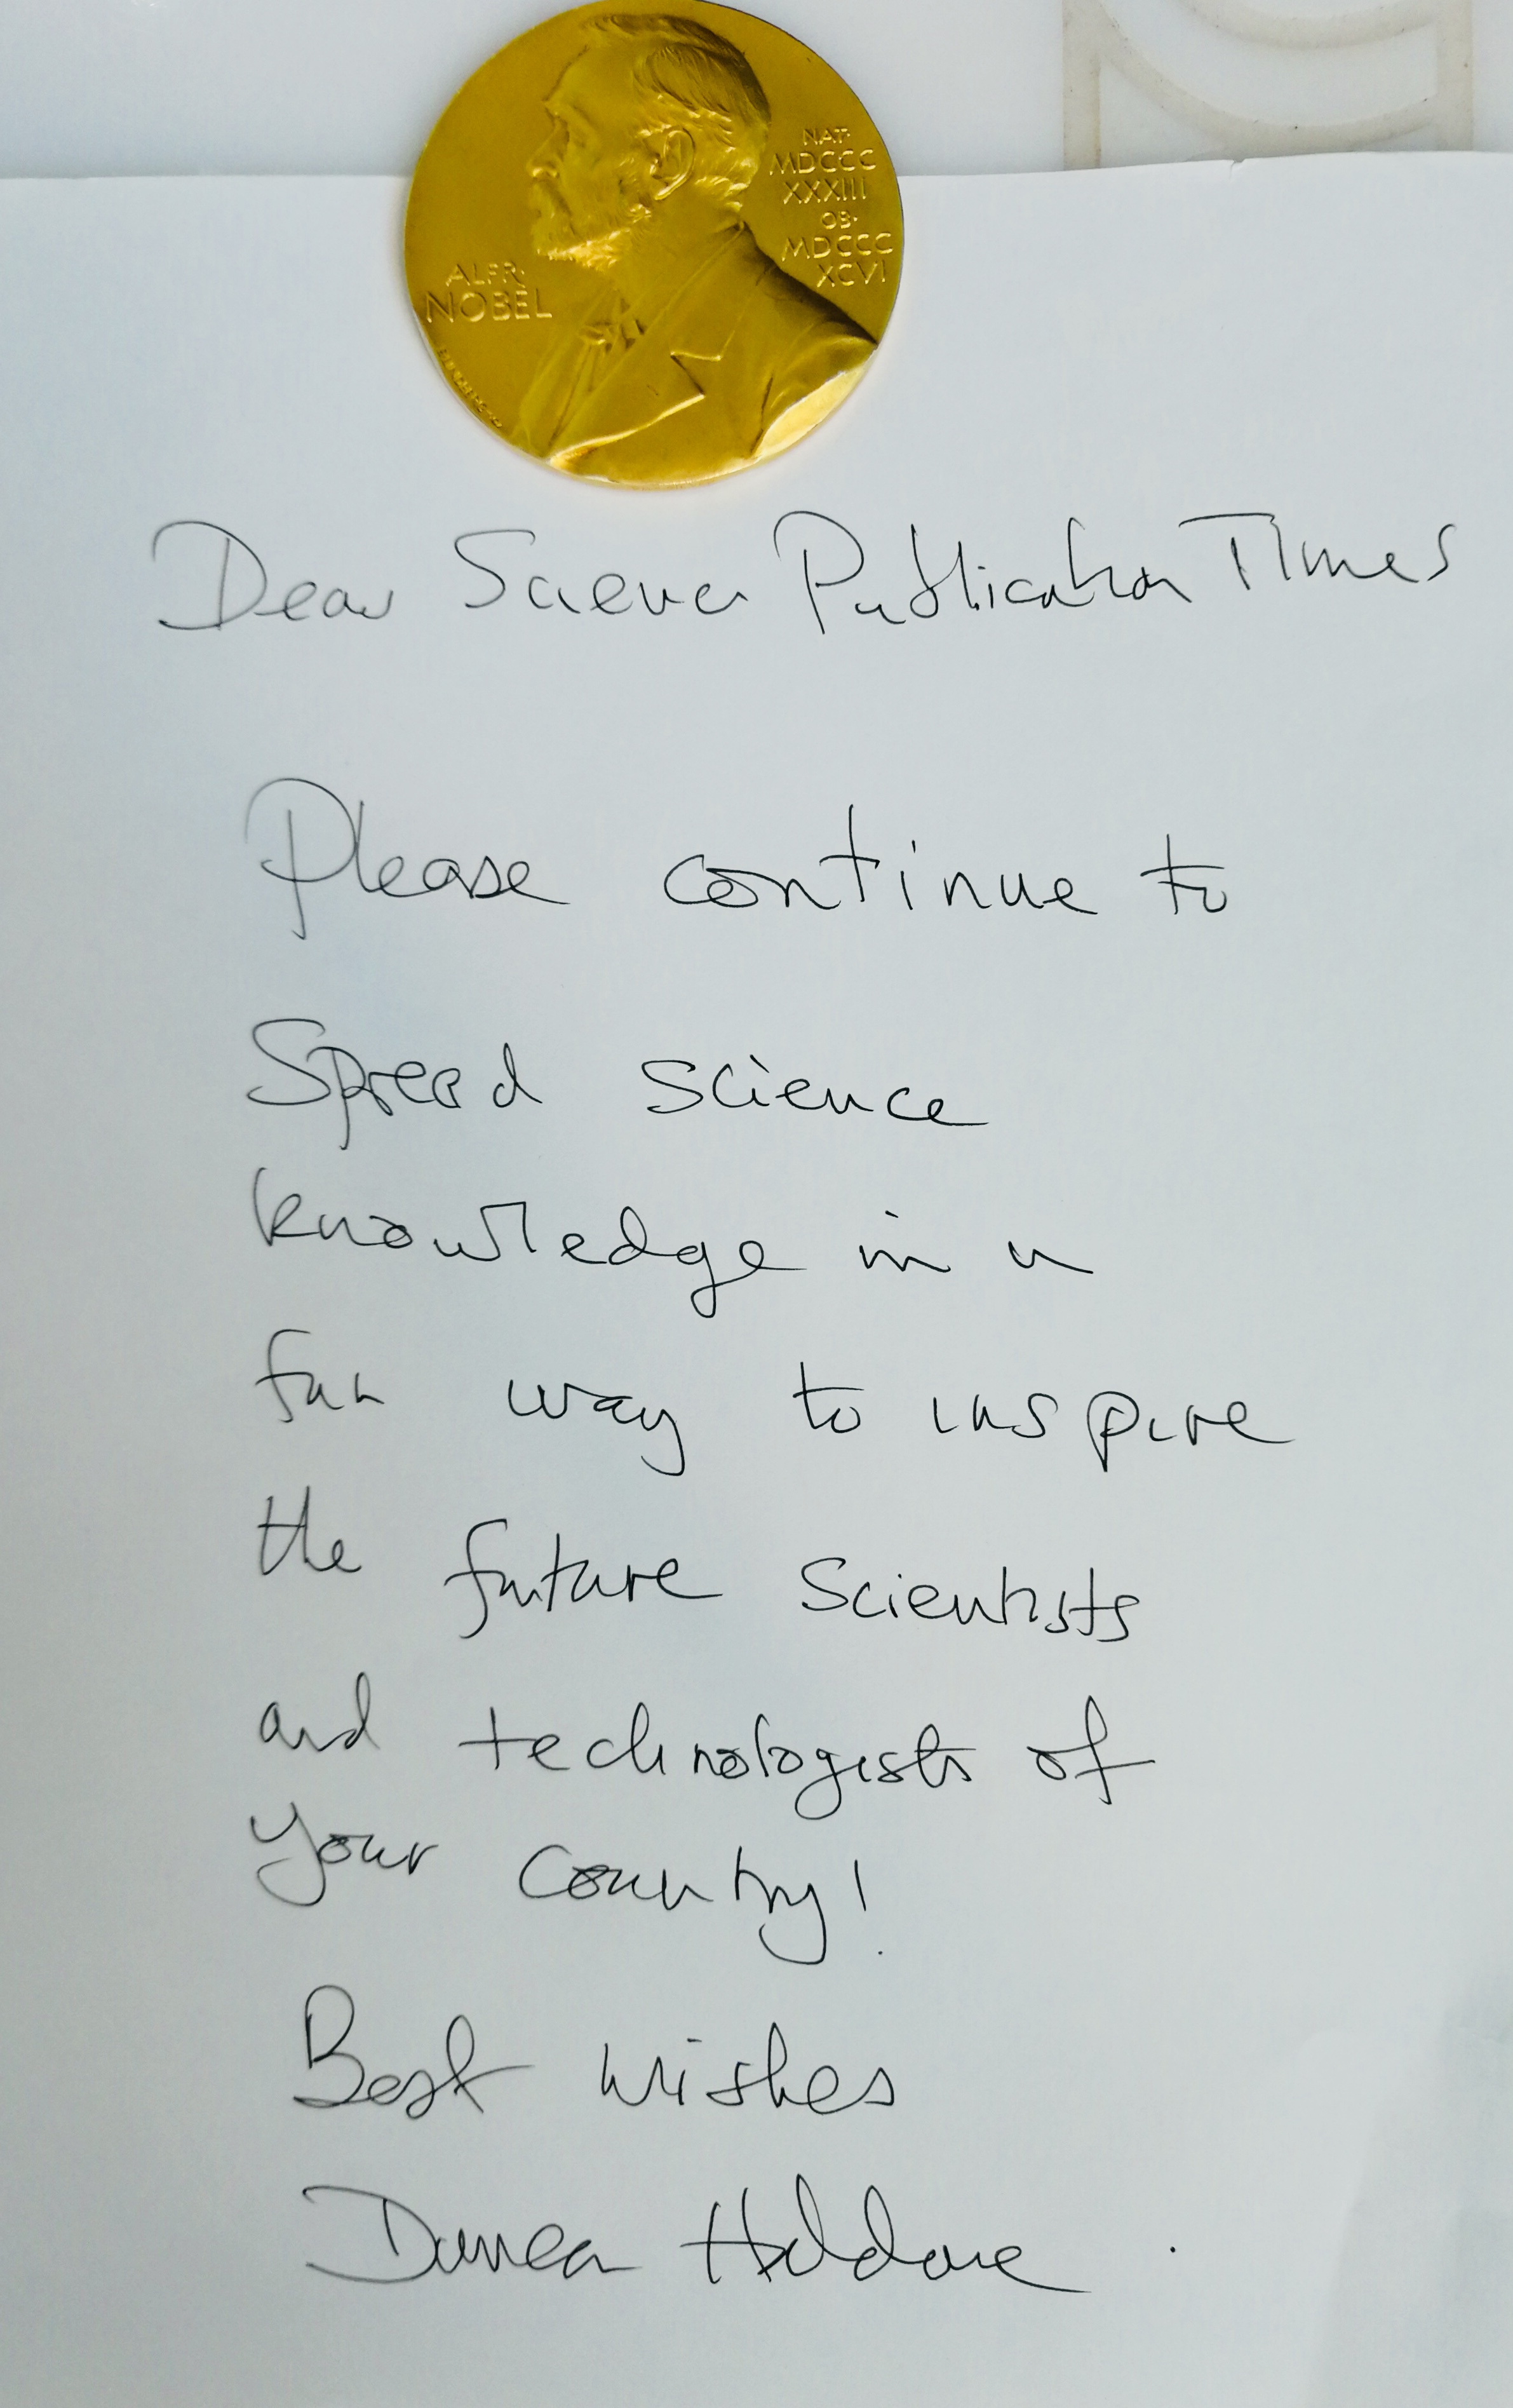 ALFR·
NOBEL
NAT·
MDCCC
XXXIII
OB·
MDCCC
XCVI
Dear Science Publication Times
Please continue to
Spread science
knowledge in a
fun way to inspire
the future Scientists
and technologists of
your country!
Best wishes
Duncan Haldane